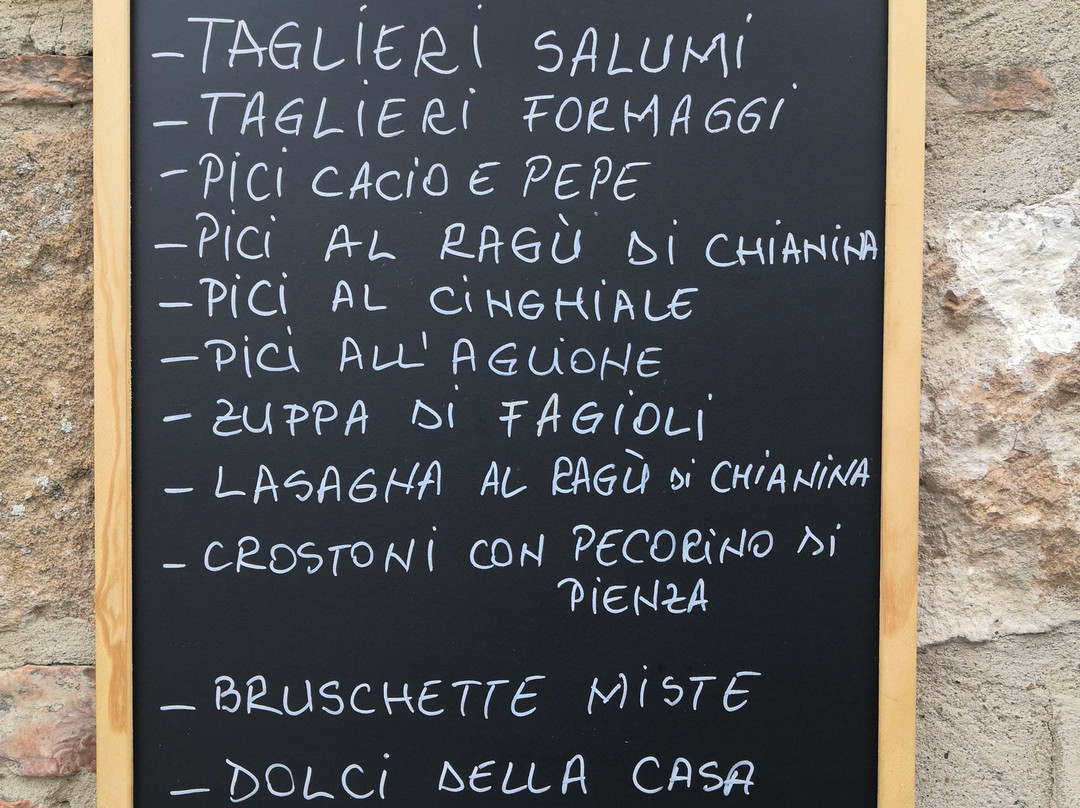 - TAGLIERI SALUMI
- TAGLIERI FORMAGGI
- PICI CACIO E PEPE
- PICI AL RAGÙ DI CHIANINA
- PICI AL CINGHIALE
- PICI ALL'AGLIONE
- ZUPPA DI FAGIOLI
- LASAGNA AL RAGÙ DI CHIANINA
- CROSTONI CON PECORINO DI
PIENZA
- BRUSCHETTE MISTE
- DOLCI DELLA CASA